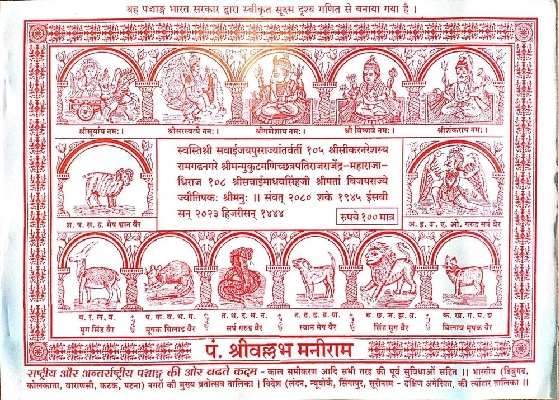 यह पञ्चाङ्ग भारत सरकार द्वारा स्वीकृत सूक्ष्म दृश्य गणित से बनाया गया है ।
श्रीसूर्याय नमः । श्रीसरस्वत्यै नमः । श्रीगणेशाय नमः । श्री विष्णवे नमः । श्रीशंकराय नमः ।
स्वस्तिश्री सवाईजयपुरराज्यांतर्वर्ती १०५ श्रीसीकरनरेशस्य
रामगढनगरे श्रीमन्मुकुटमणिच्छत्रपतिराजराजेंद्र-महाराजा-
धिराज १०८ श्रीसवाईमाधवसिंहजी श्रीमतां विजयराज्ये
ज्यौतिषिकः श्रीमनुः ।। संवत् २०८० शके १९४५ ईसवी
सन् २०२३ हिजरीसन् १४४४
रुपये १०० मात्र
श. ष. स. ह. मेष श्वान वैर
अ. इ. उ. ए. ओ. गरुड सर्प वैर
य. र. ल. व. प. फ. ब. भ. म. त. थ. द. ध. न. ट. ठ. ड. ढ. ण. च. छ. ज. झ. ञ. क. ख. ग. घ. ङ
मृग सिंह वैर मूषक बिलाव वैर सर्प गरुड वैर श्वान मेष वैर सिंह मृग वैर बिलाव मूषक वैर
पं. श्रीवल्लभ मनीराम
राष्ट्रीय और अन्तर्राष्ट्रीय पञ्चाङ्ग की ओर बढते कदम - काल समीकरण आदि सभी तरह की पूर्व सुविधाओं सहित ।। भारतीय (डिब्रुगढ,
कोलकाता, वाराणसी, कटक, पटना) नगरों की मुख्य व्रतोत्सव तालिका । विदेश (लंदन, न्यूयोर्क, सिंगापुर, सूरीनाम - दक्षिण अमेरिका, की त्योंहार तालिका ।।